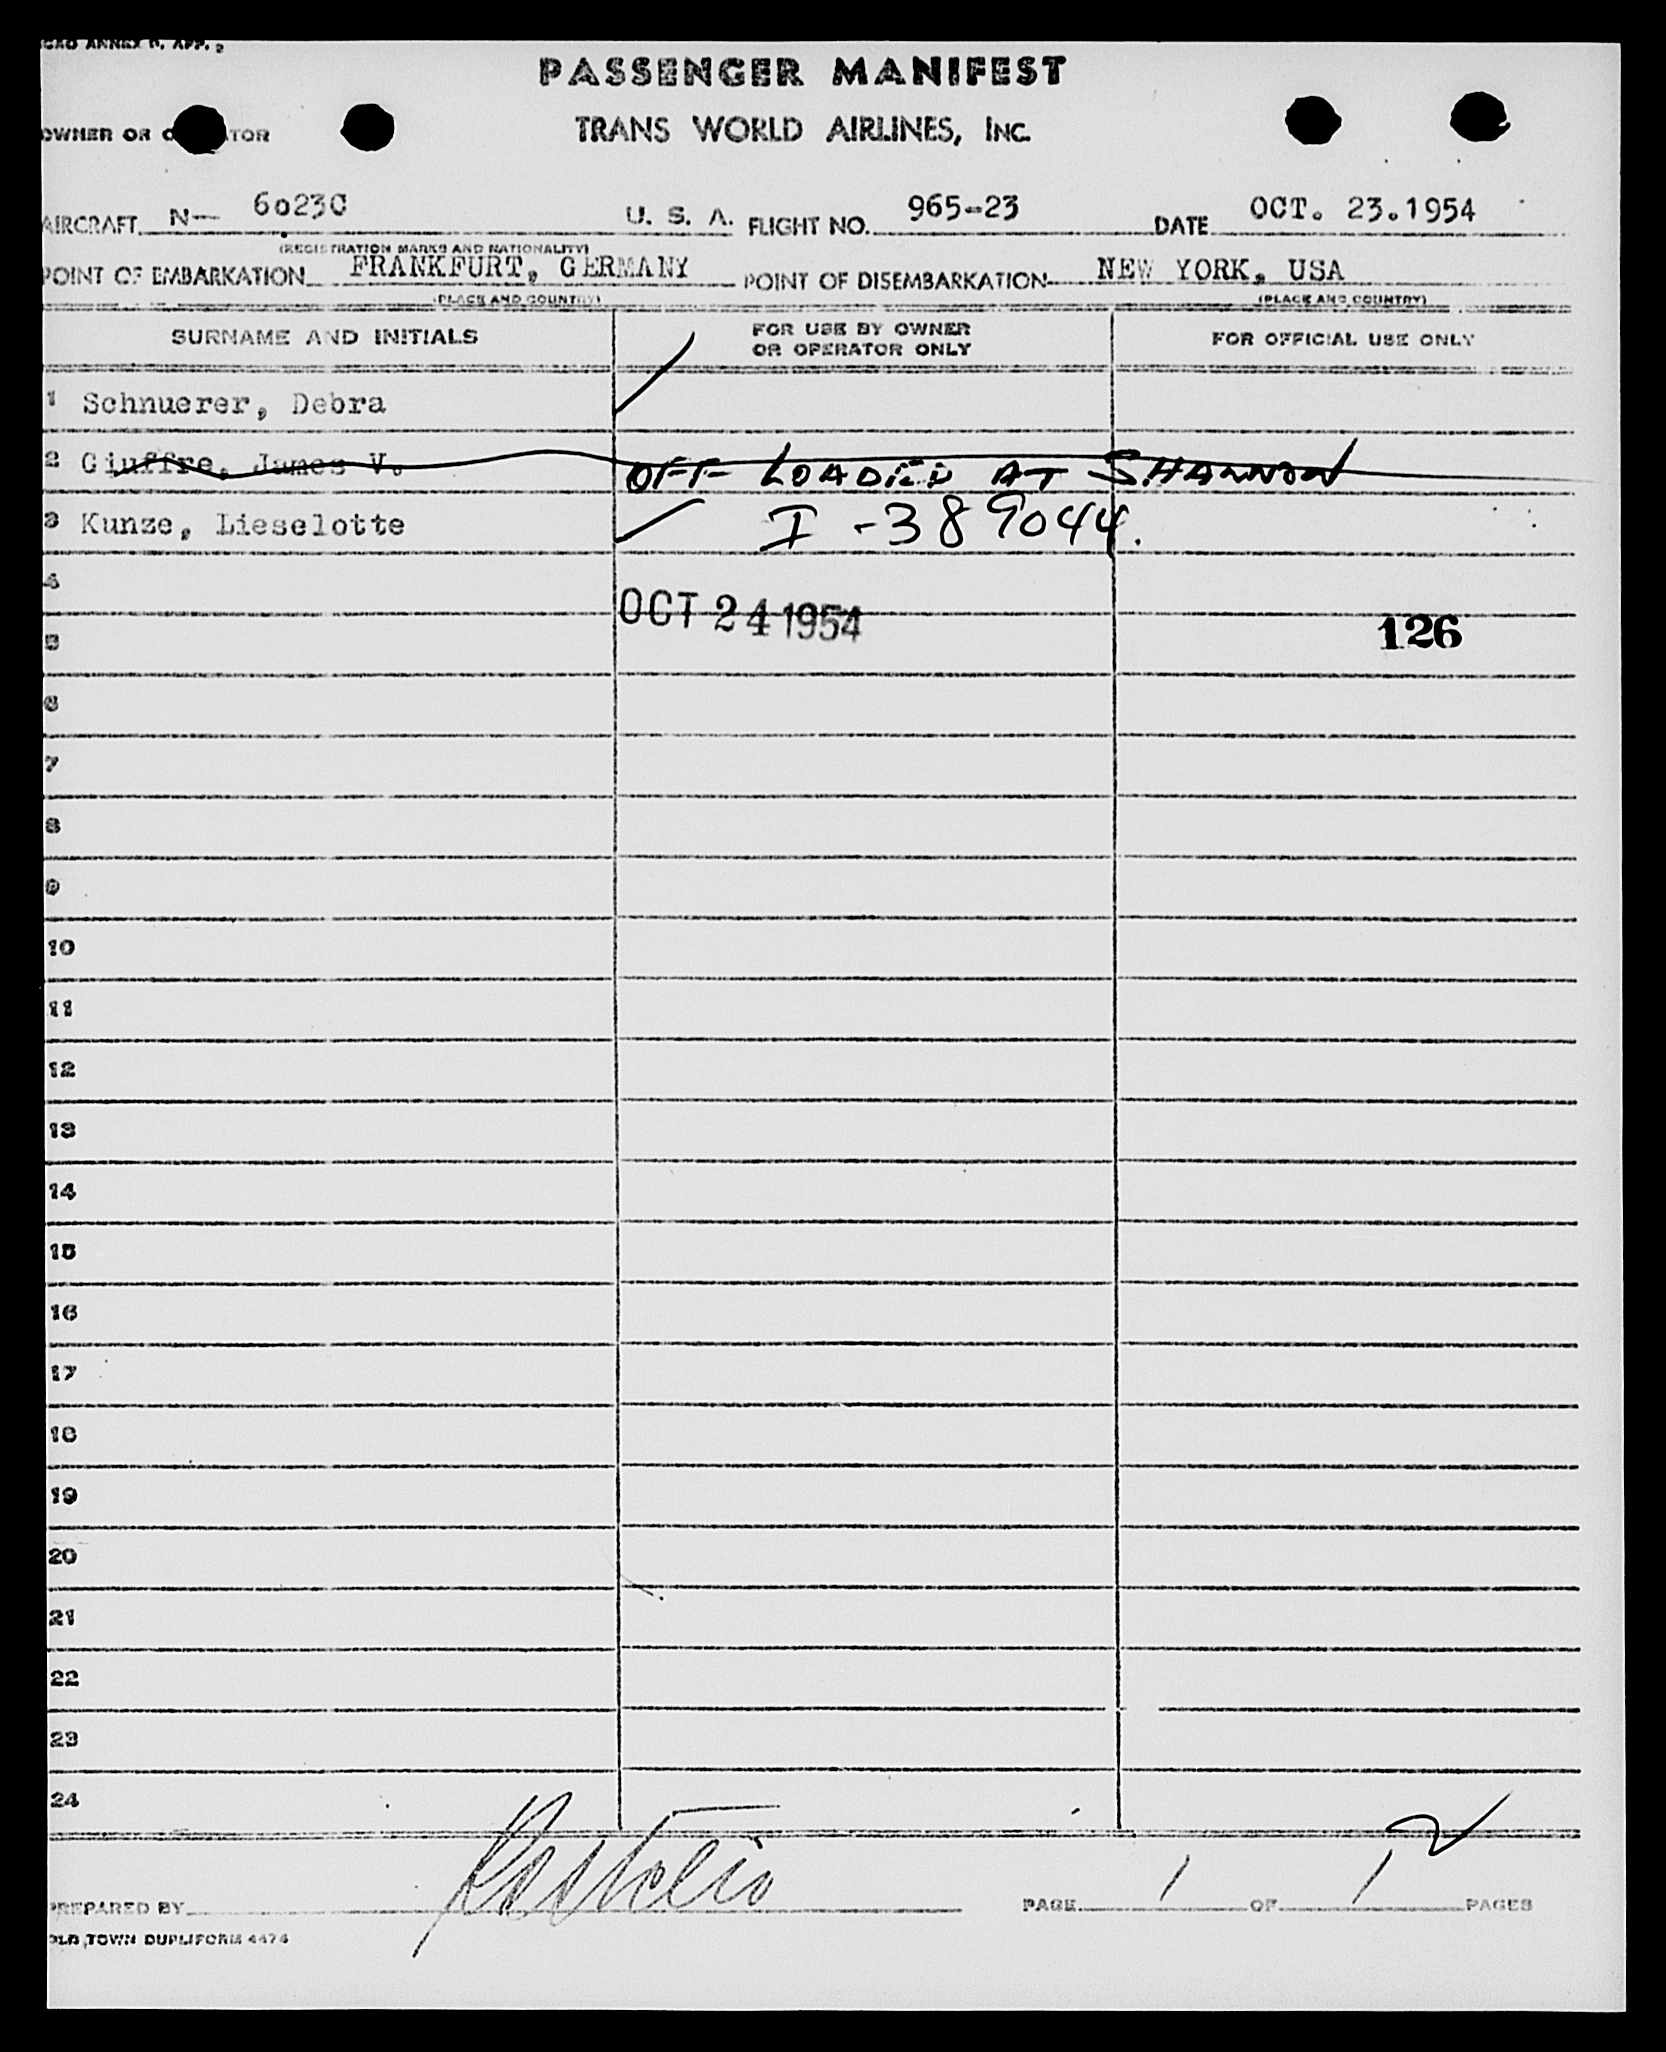 ICAO ANNEX 9, APP. 2
PASSENGER MANIFEST
OWNER OR OPERATOR
TRANS WORLD AIRLINES, INC.
AIRCRAFT N— 6023C U. S. A. FLIGHT NO. 965-23 DATE OCT. 23.1954
(REGISTRATION MARKS AND NATIONALITY)
POINT OF EMBARKATION FRANKFURT, GERMANY POINT OF DISEMBARKATION NEW YORK, USA
(PLACE AND COUNTRY) (PLACE AND COUNTRY)
SURNAME AND INITIALS FOR USE BY OWNER OR OPERATOR ONLY FOR OFFICIAL USE ONLY
1 Schnuerer, Debra
2 Giuffre, James V. OFF LOADED AT SHANNON
3 Kunze, Lieselotte I -389044.
4
OCT 24 1954
5 126
6
7
8
9
10
11
12
13
14
15
16
17
18
19
20
21
22
23
24
PREPARED BY PAGE 1 OF 1 PAGES
OLD TOWN DUPLIFORM 4474